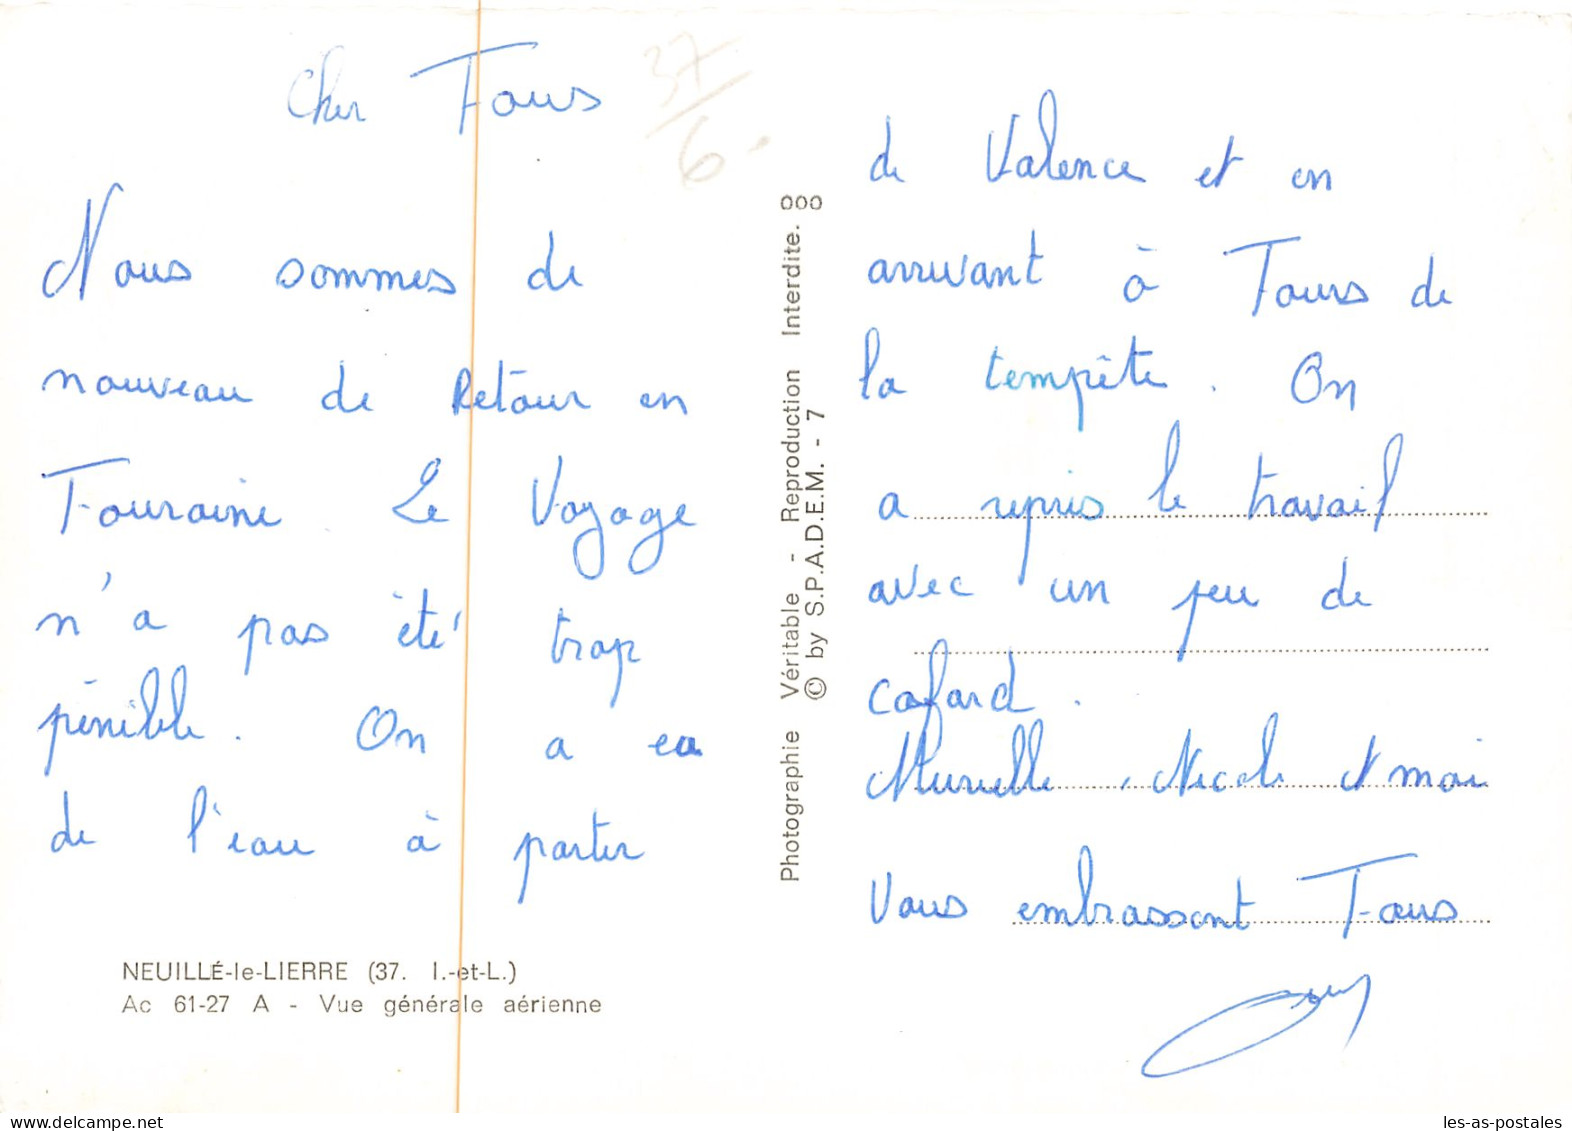 Cher Tous
37/6.
Nous sommes de
nouveau de Retour en
Touraine. Le Voyage
n'a pas été trop
pénible. On a eu
de l'eau à partir
NEUILLÉ-le-LIERRE (37. I.-et-L.)
Ac 61-27 A - Vue générale aérienne
Photographie Véritable - Reproduction Interdite. 000
© by S.P.A.D.E.M. - 7
de Valence et en
arrivant à Tours de
la tempête. On
a repris le travail
avec un peu de
cafard.
Murielle, Nicole et moi
Vous embrassont Tous
les-as-postales